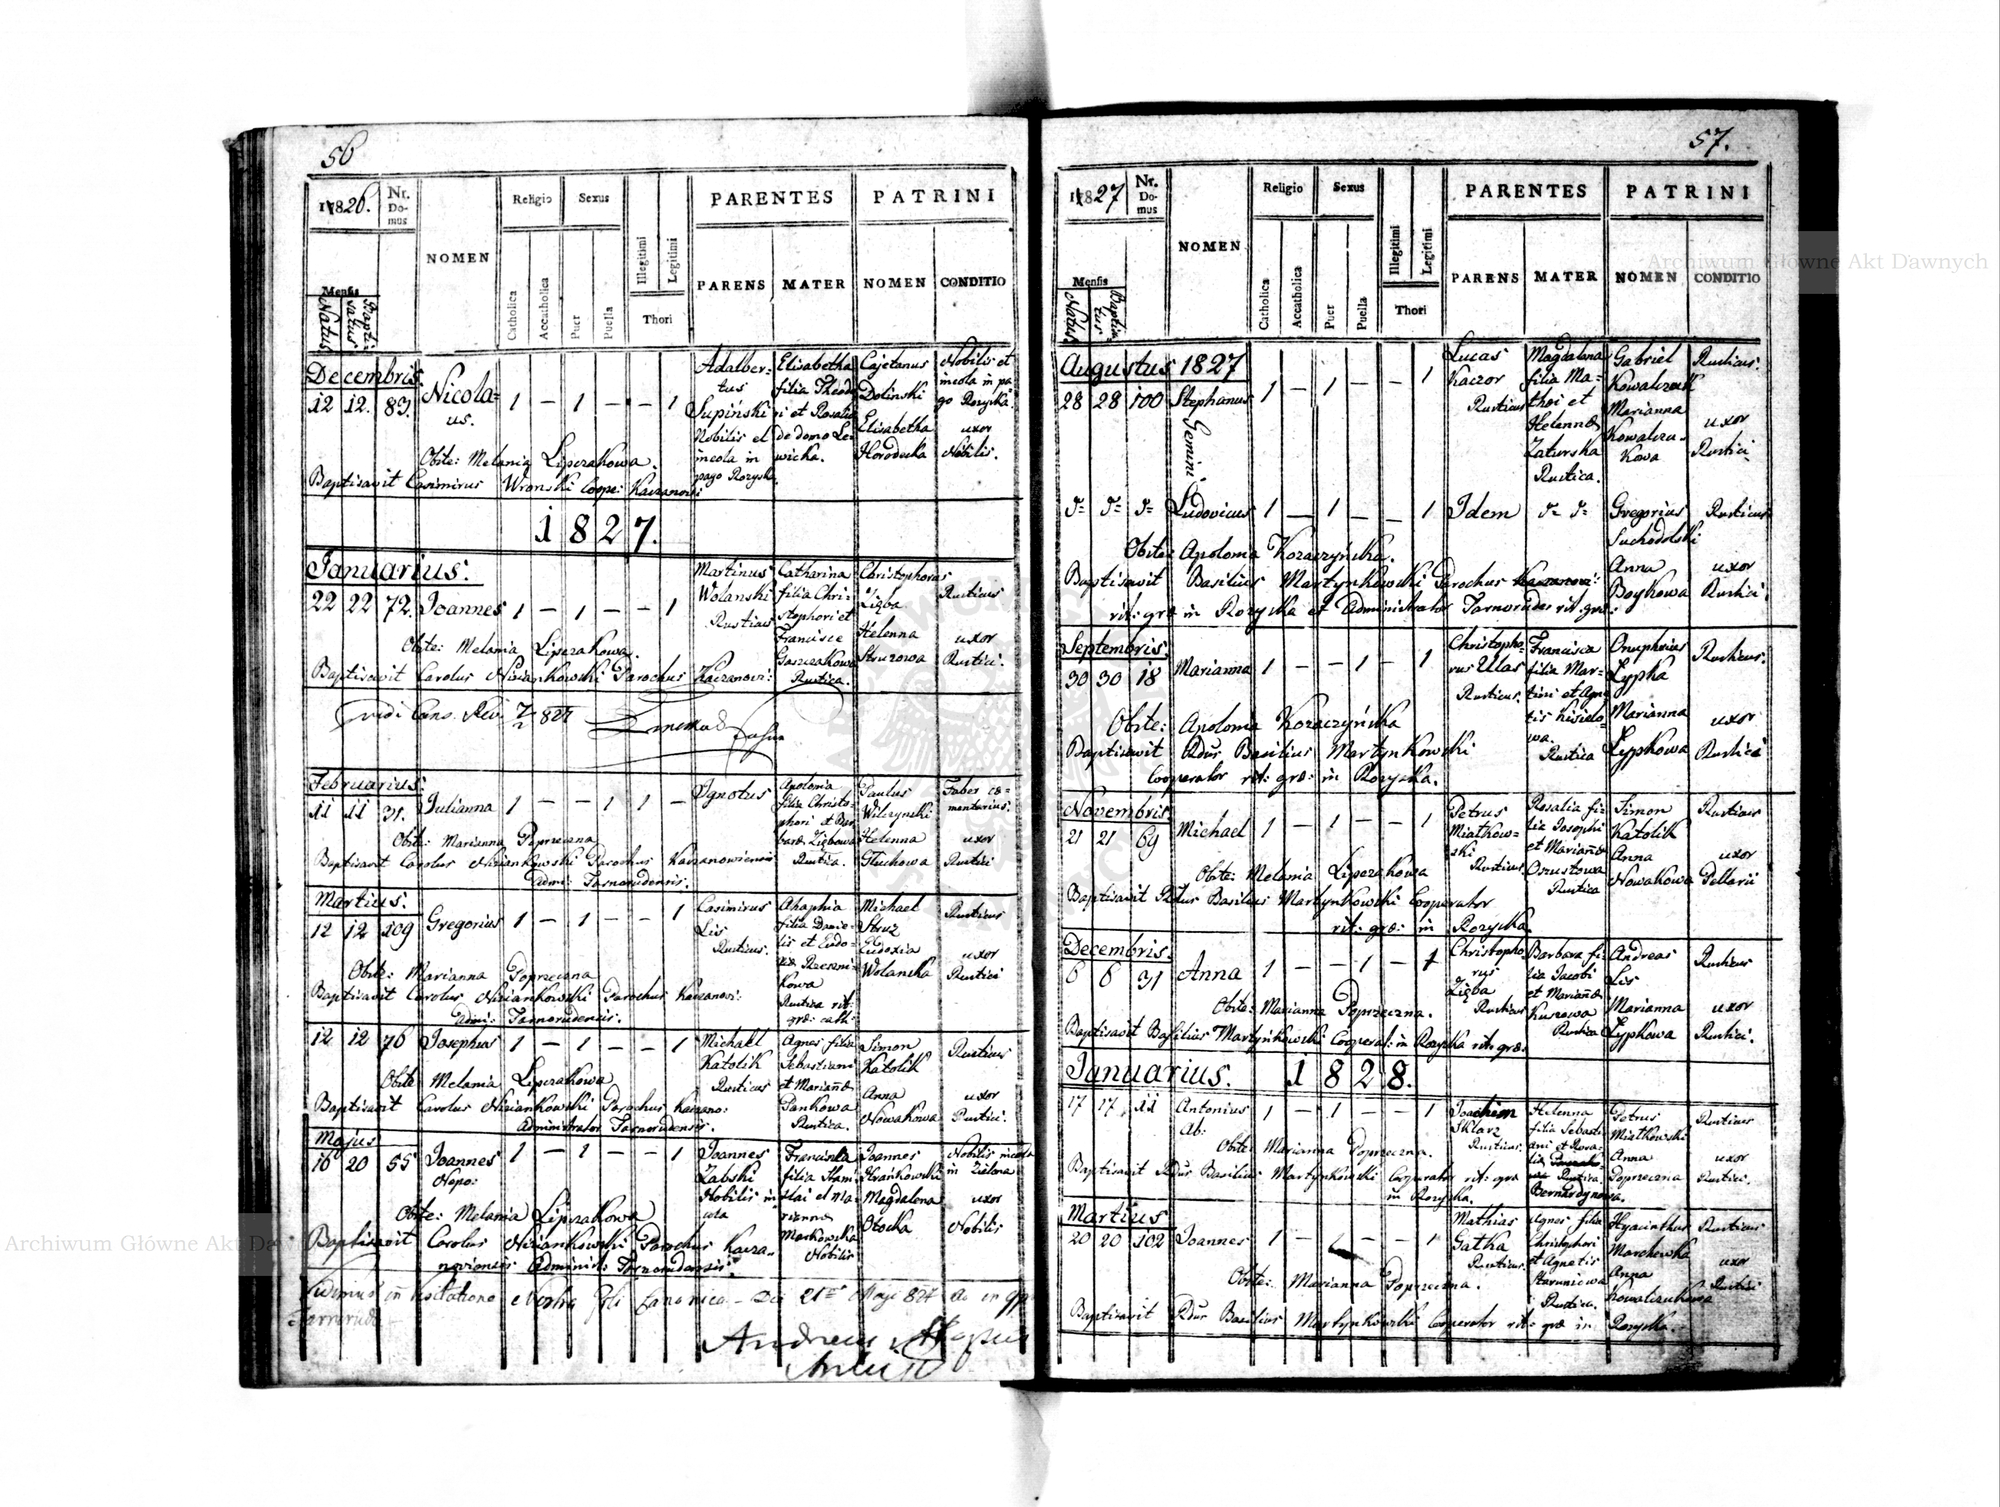 56
1826.
Nr. Domus
NOMEN
Religio
Sexus
Catholica
Accatholica
Puer
Puella
Illegitimi
Legitimi
Thori
PARENTES
PATRINI
PARENS
MATER
NOMEN
CONDITIO
Mensis
Natus
Baptisatus
Decembris.
12 12. 83. Nicolaus. 1 – 1 – – 1
Adalbertus
Supiński
Nobilis et
incola in
pago Rozyska.
Elisabetha
filia Theodori et Rosalia
de domo Lewicka.
Cajetanus
Dolinski
Elisabetha
Horodecka
Nobilis et
incola in pago Rozyska.
uxor
Nobilis.
Obste: Melania Lipczakowa.
Baptisavit Casimirus Wronski Coope: Kaczanovi
1827.
Januarius.
22 22 72. Joannes 1 – 1 – – 1
Martinus
Wolanski
Rusticus
Catharina
filia Christophori et
Francisce
Gaszczakowa
Rustica.
Christophorus
Zięba
Helenna
Struzowa
Rusticus
uxor
Rustici.
Obste: Melania Lipczakowa.
Baptisavit Carolus Niziankowski Parochus Kaczanovi:
vidi Cano. Rev. 827
Februarius.
11 11 31. Julianna 1 – – 1 1 –
Ignotus
Apolonia
filia Christophori et Barbara Ziębowa
Rustica.
Paulus
Wilczynski
Helenna
Gluchowa
Faber cementarius.
uxor
Rustici
Obste: Marianna Poprzeczna
Baptisavit Carolus Niziankowski Parochus Kaczanowiensis
Admi: Tarnorudensis.
Martius.
12 12 109 Gregorius 1 – 1 – – 1
Casimirus
Lis
Rusticus.
Ahaphia
filia Danielis et Eudo-
kowa
Rustica rit:
græ: cath:
Michael
Struz
Eudoxia
Wolanska
Rusticus
uxor
Rustici
Obste: Marianna Poprzeczna
Baptisavit Carolus Niziankowski Parochus Kaczanovi:
Admi: Tarnorudensis.
12 12 76 Josephus 1 – 1 – – 1
Michael
Katolik
Rusticus
Agnes filia
Sebastiani
et Marianæ
Pankowa
Rustica.
Simon
Katolik
Anna
Nowakowa
Rusticus
uxor
Rustici.
Obste Melania Lipczakowa
Baptisavit Carolus Niziankowski Parochus Kaczano:
Administrator Tarnorudensis.
Majus
16 20 55 Joannes Nepo: 1 – 1 – – 1
Joannes
Zabski
Nobilis incola
Francisca
filia Stanislai et Marianna
Markowska
Nobilis
Joannes
Magdalena
Otocka
Nobilis incola
in Zielona
uxor
Nobilis
Obste: Melania Lipczakowa
Baptisavit Carolus Niziankowski Parochus Kaczanoviensis Administ: Tarnorudensis.
Vidimus in Visitatione Nostra canonica die 21 Maji 827
Tarnoruda
Andreas
57.
1827
Nr. Domus
NOMEN
Religio
Sexus
Catholica
Accatholica
Puer
Puella
Illegitimi
Legitimi
Thori
PARENTES
PATRINI
PARENS
MATER
NOMEN
CONDITIO
Mensis
Natus
Baptisatus
Augustus 1827
28 28 100 Stephanus 1 – 1 – – 1
Gemini.
Lucas
Kaczor
Rusticus
Magdalena
filia Mathei et
Helennæ
Zaturska
Rustica.
Gabriel
Kowalczuk
Marianna
Kowalczukowa
Rusticus.
uxor
Rustici.
d= d= d= Ludovicus 1 – 1 – – 1
Idem
d= d=
Gregorius
Suchodolski
Anna
Boykowa
Rusticus
uxor
Rustici.
Obste: Apolonia Kozaczyńska.
Baptisavit Basilius Martynkowski Parochus Kaczanovi:
rit: græ in Rozyska et Administrator Tarnorudens rit: græ:
Septembris.
30 30 18 Marianna 1 – – 1 – 1
Christophorus Ulas
Rusticus.
Francisca
filia Martini et Agnetis Kisielowa.
Rustica
Onuphrius
Lypka
Marianna
Lypkowa
Rusticus.
uxor
Rustici
Obste: Apolonia Kozaczyńska
Baptisavit Rdus Basilius Martynkowski
Cooperator rit: græ: in Rozyska.
Novembris.
21 21 69 Michael 1 – 1 – – 1
Petrus
Miatkowski
Rusticus
Rosalia filia Josephi
et Marianæ
Oszustowa
Rustica
Simon
Katolik
Anna
Nowakowa
Rusticus
uxor
Pellarii
Obste: Melania Lipczakowa
Baptisavit Rdus Basilius Martynkowski Cooperator
rit: græ: in Rozyska.
Decembris.
6 6 31 Anna 1 – – 1 – 1
Christophorus
Zięba
Rusticus
Barbara filia Jacobi
et Marianæ
Kuszowa
Rustica
Andreas
Lis
Marianna
Lypkowa
Rusticus
uxor
Rustici.
Obste: Marianna Poprzeczna.
Baptisavit Basilius Martynkowski Cooperat: in Rozyska rit: græ:
Januarius. 1828.
17 17 11 Antonius Ab: 1 – 1 – – 1
Joachim
Sklarz
Rusticus.
Helenna
filia Sebastiani et Rosalia
Rustica.
Bernardynowa.
Petrus
Miatkowski
Anna
Poprzeczna
Rusticus
uxor
Rustici.
Obste: Marianna Poprzeczna.
Baptisavit Rdus Basilius Martynkowski Cooperator rit: græ
in Rozyska.
Martius
20 20 102 Joannes 1 – 1 – – 1
Mathias
Gatka
Rusticus.
Agnes filia
Christophori
et Agnetis
Rustica.
Hyacinthus
Marchewka
Anna
Kowalczukowa
Rusticus
uxor
Rustici
Obste: Marianna Poprzeczna.
Baptisavit Rdus Basilius Martynkowski Cooperator rit: græ in Rozyska.
Archiwum Główne Akt Dawnych
Archiwum Główne Akt Dawnych